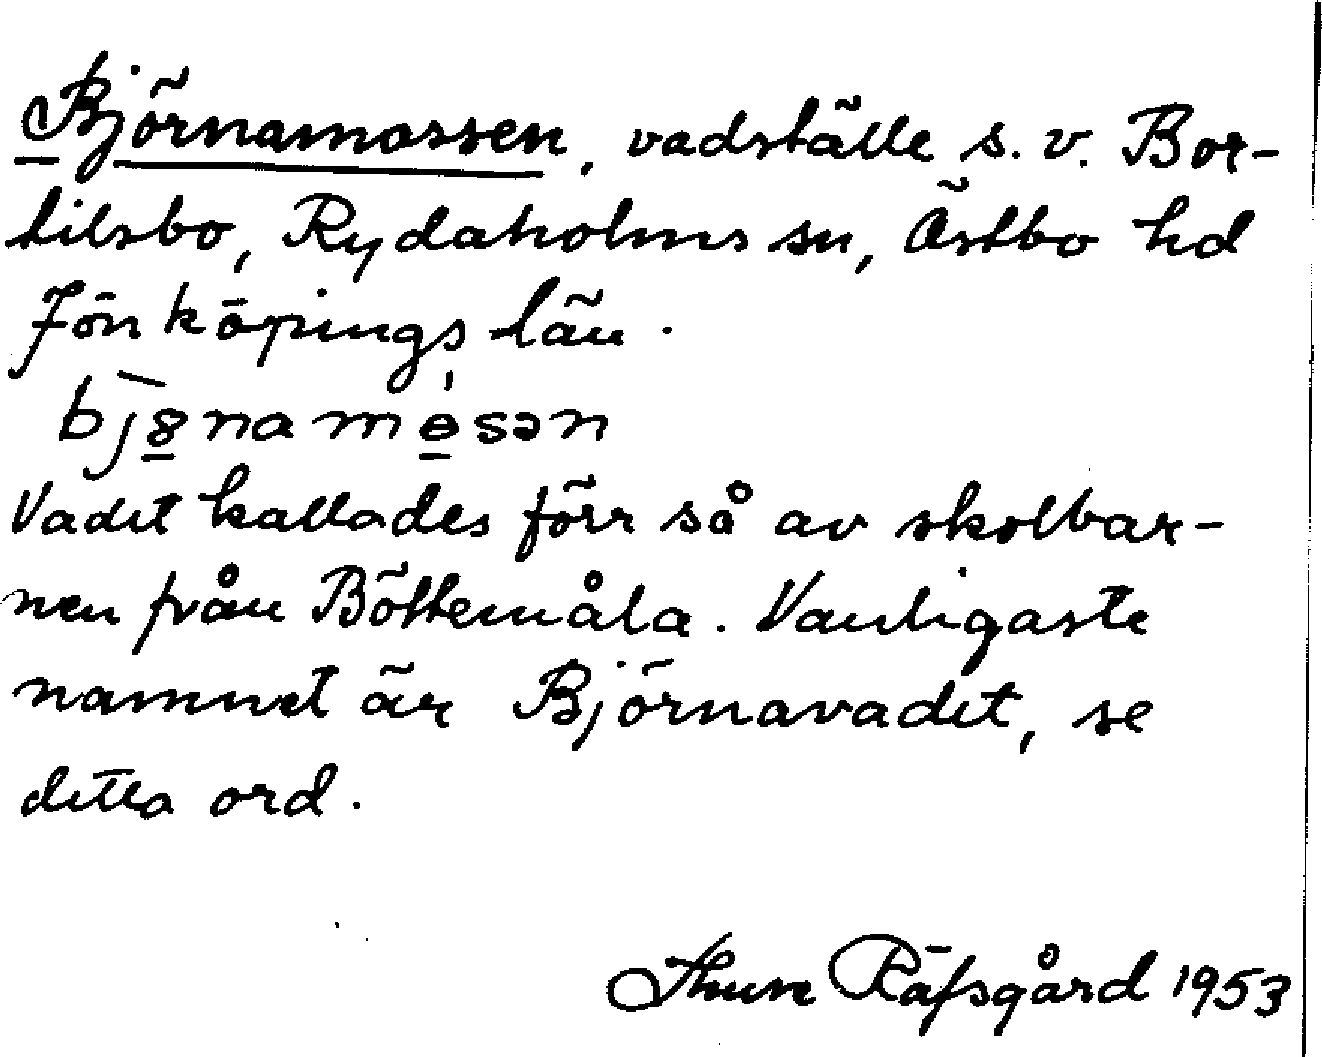 Björnamossen, vadställe s.v. Bor-
tilsbo, Rydaholms sn, Östbo hd
Jönköpings län.
bjönamòsən
Vadet kallades förr så av skolbar-
nen från Böttemåla. Vanligaste
namnet är Björnavadet, se
detta ord.
Thure Räfsgård 1953